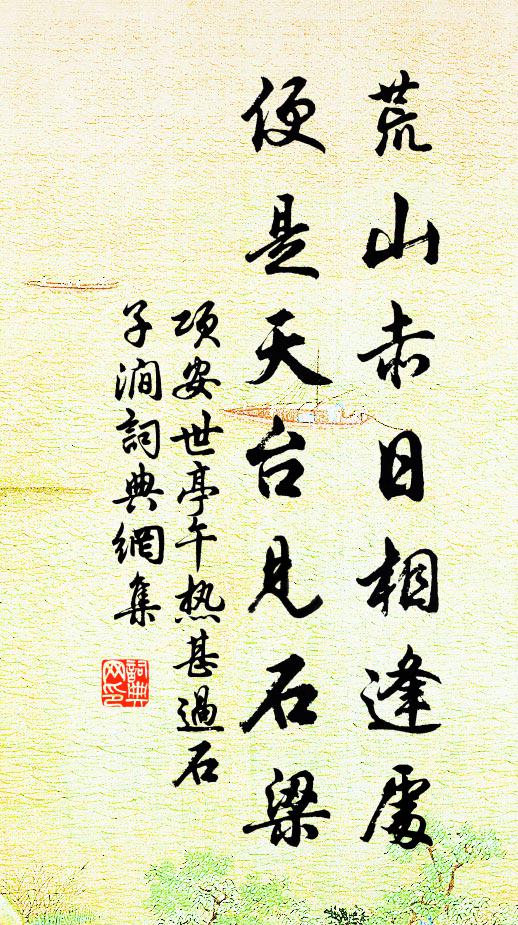 荒山赤日相逢處
便是天台見石梁
項安世亭午热甚過石
子澗詞典網集
詞典
网印